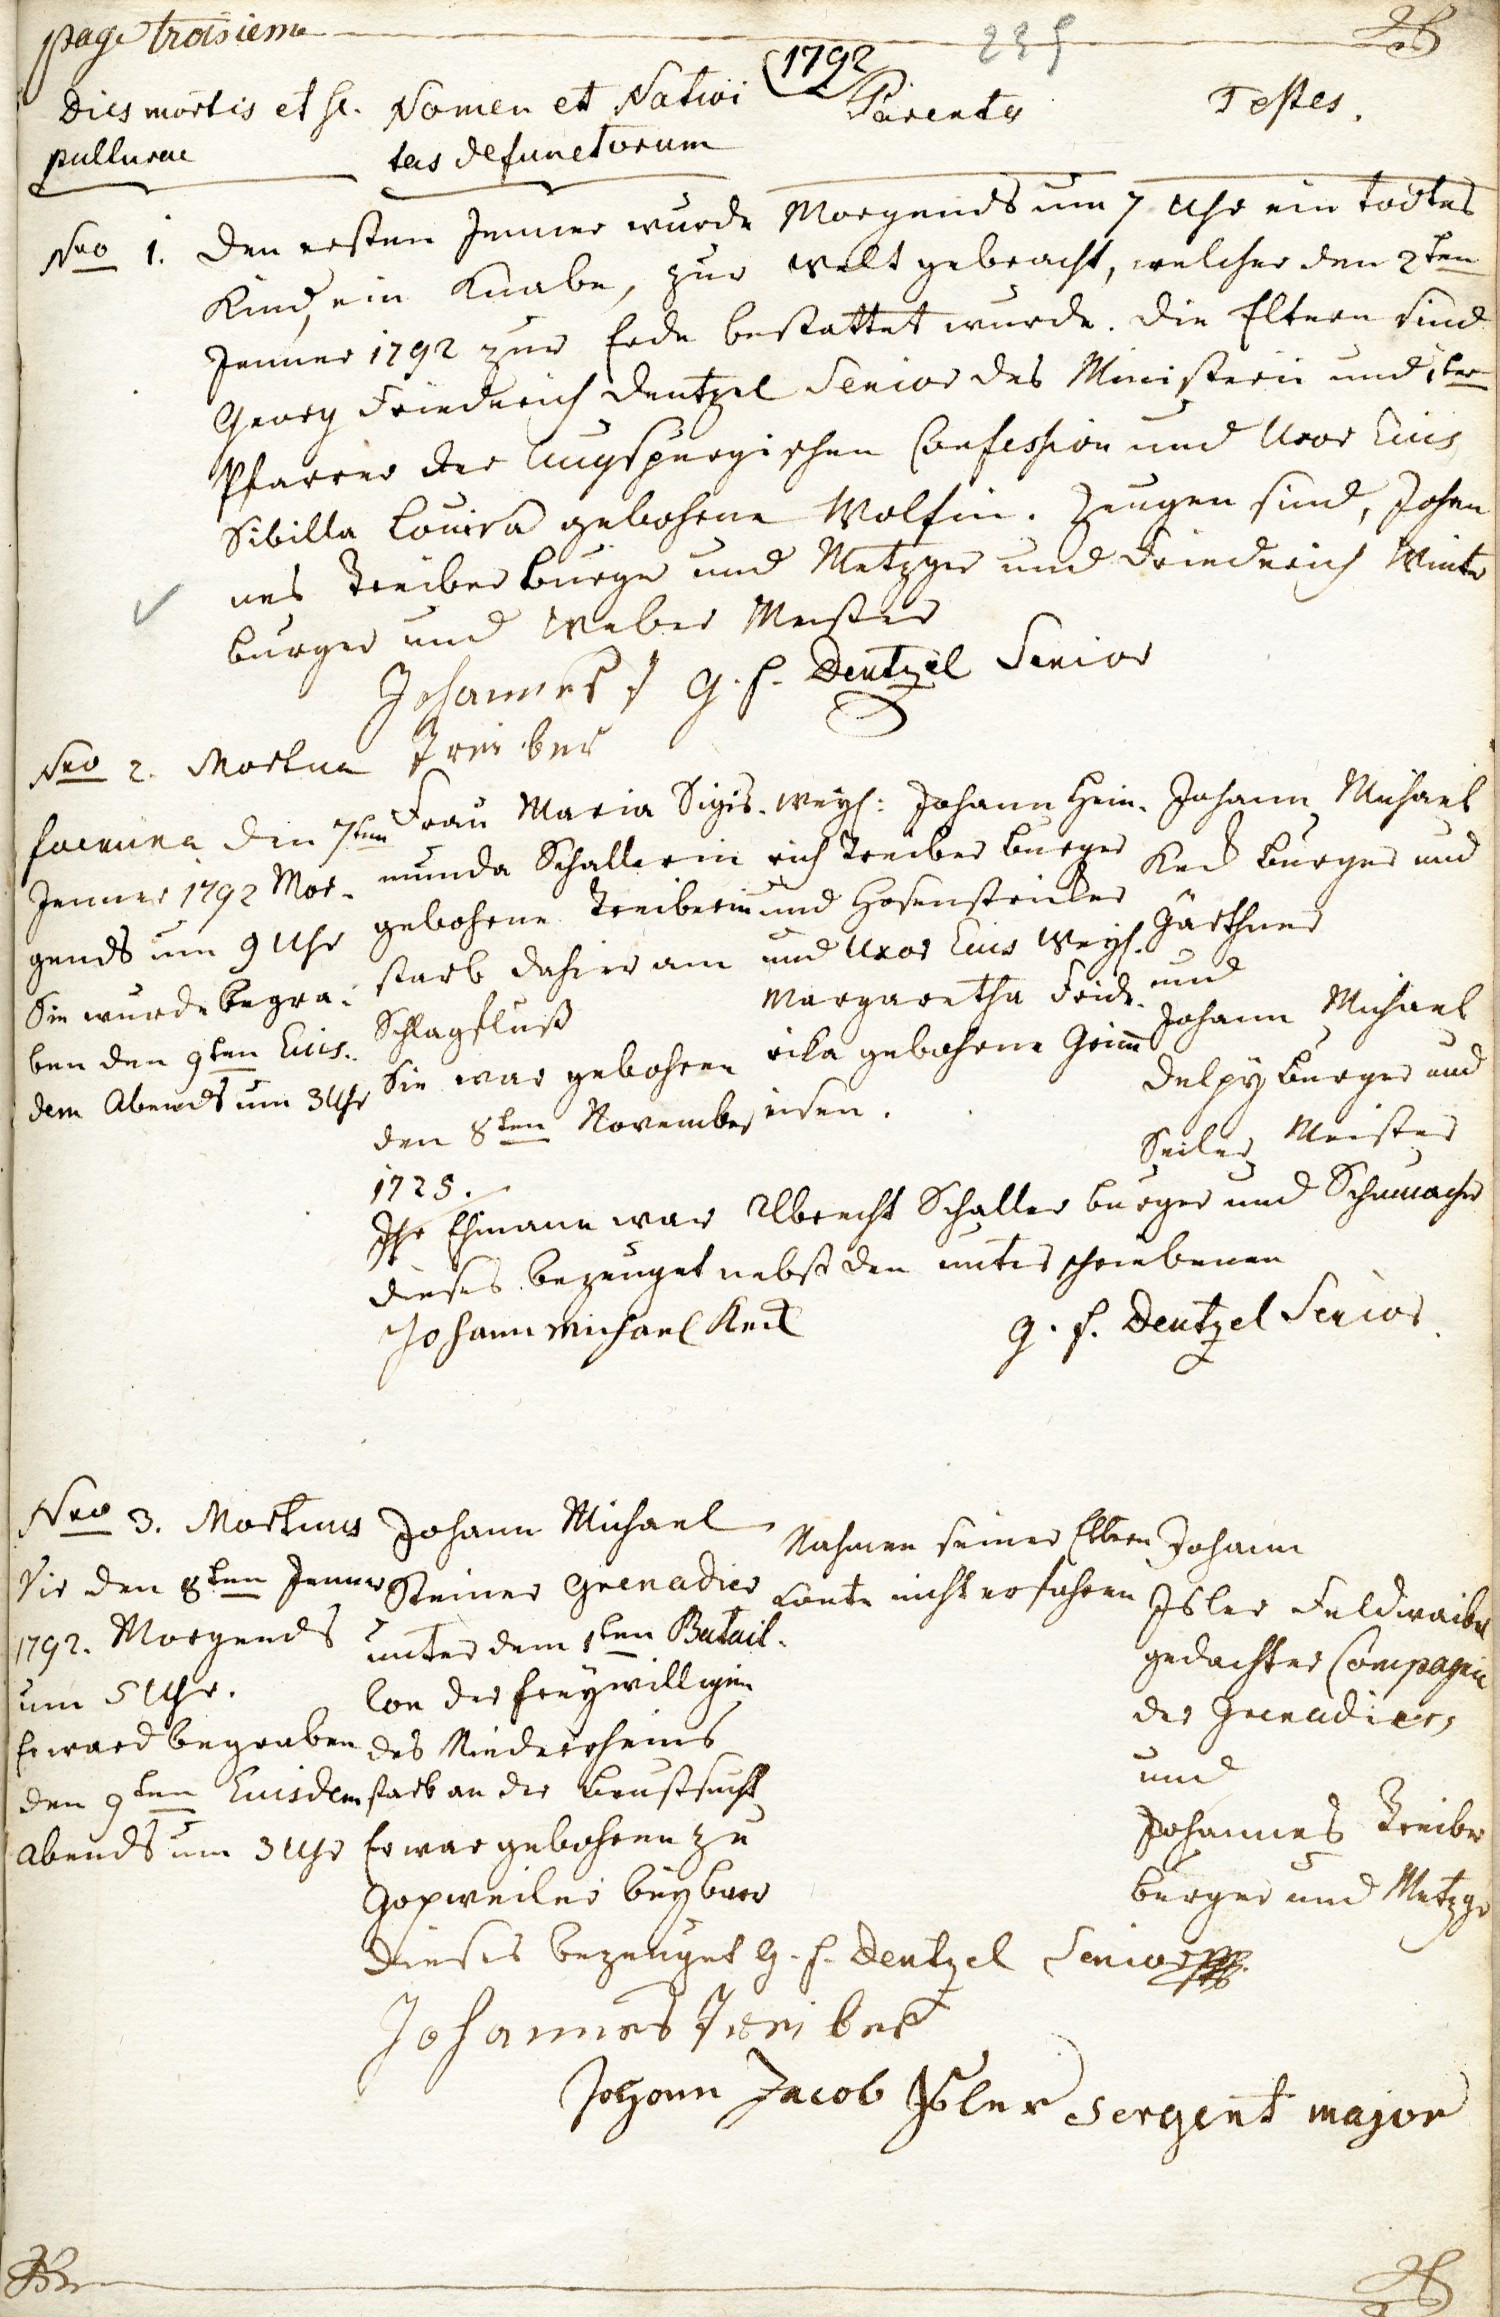 page troisieme
1792
235
Dies mortis et se-
pulturae
Nomen et Nativi
tas defunctorum
Parentes
Testes.
Nro 1. Den ersten Jenner wurde Morgends um 7 Uhr ein todtes
Kind, ein Knabe, zur Welt gebracht, welcher den 2ten
Jenner 1792 zur Erde bestattet wurde. Die Eltern sind
Georg Friedrich Dentzel Senior des Ministerii und 1ter
Pfarrer der Augspurgischen Confession und Uxor Eius
Sibilla Louisa gebohrne Wolfin. Zeugen sind, Johan
nes Treiber Burger und Metzger und Friedrich Winter
Burger und Weber Meister
Johannes G. F. Dentzel Senior
Treiber
Nro 2. Mortua
foemina den 7ten
Jenner 1792 Mor-
gends um 9 Uhr
Sie wurde begra-
ben den 9ten Eius-
dem Abends um 3 Uhr
Frau Maria Sigis-
munda Schallerin
gebohrne Treiberin
starb dahier am
Schlagfluß
Sie war gebohren
den 8ten November
1725.
Weyl: Johann Hein-
rich Treiber Burger
und Hosenstricker
und Uxor Eius Weyl.
Margaretha Fride-
rika gebohrne Grimm
eisen.
Johann Michael
Keck Burger und
Gärthner
und
Johann Michael
Delpy Burger und
Seiler Meister
Ihr Ehmann war Albrecht Schaller Burger und Schumacher
dieses bezeuget nebst den unterschriebenen
Johann Michael Keck
G. F. Dentzel Senior.
Nro 3. Mortuus
Vir den 8ten Jenner
1792. Morgends
um 5 Uhr.
Er ward begraben
den 9ten Eiusdem
Abends um 3 Uhr
Johann Michael
Steiner Grenadier
unter dem 1ten Batail-
lon der freywilligen
des Niederrheins
starb an der Brustsucht
Er war gebohren zu
Goxweiler bey Barr
Nahmen seiner Eltern
konte nicht erfahren
Johann
Isler Feldwaibel
gedachter Compagnie
der Grenadiers
und
Johannes Treiber
Burger und Metzger
dieses bezeuget G. F. Dentzel Senior
Johannes Treiber
Johann Jacob Isler Sergent major